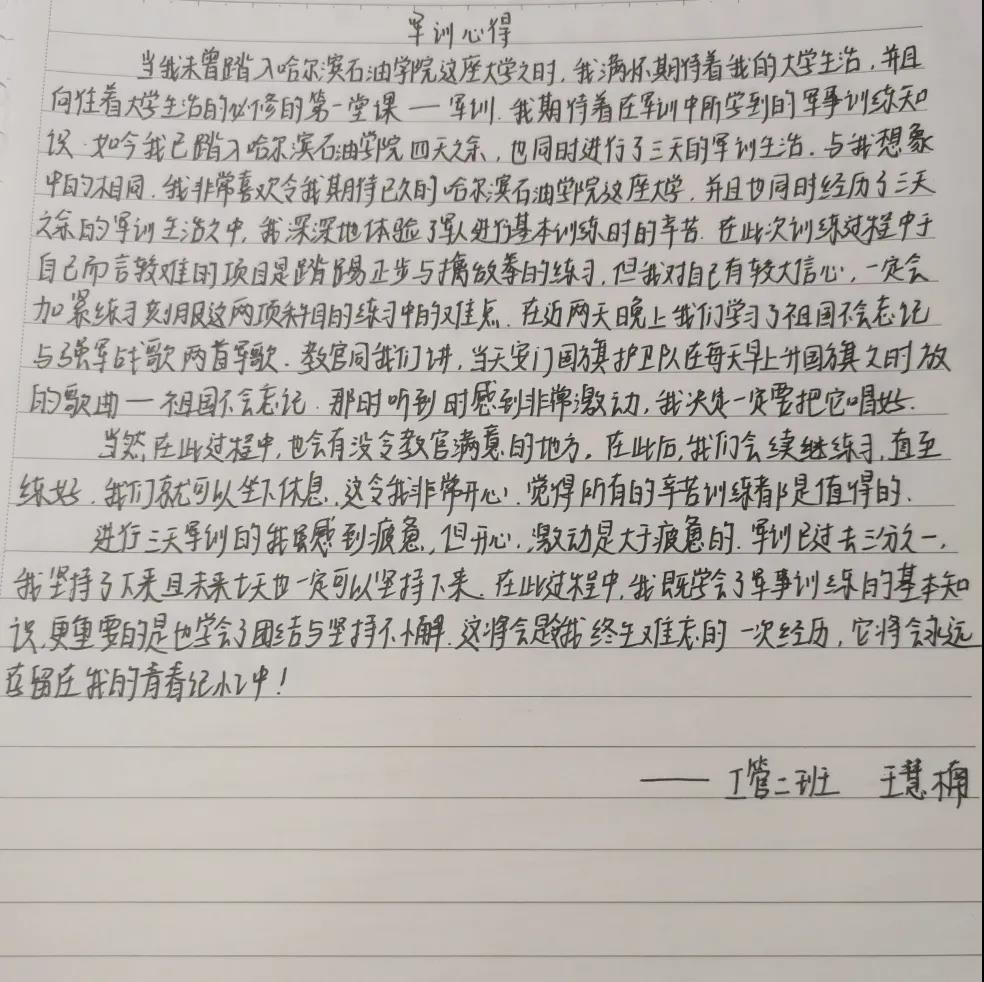 军训心得
当我未曾踏入哈尔滨石油学院这座大学之时,我满怀期待着我的大学生活,并且
向往着大学生活的必修的第一堂课——军训.我期待着在军训中所学到的军事训练知
识.如今我已踏入哈尔滨石油学院四天之余,也同时进行了三天的军训生活.与我想象
中的相同.我非常喜欢令我期待已久的哈尔滨石油学院这座大学.并且也同时经历了三天
之余的军训生活之中,我深深地体验了军人进行基本训练时的辛苦.在此次训练过程中于
自己而言较难的项目是踏踢正步与擒敌拳的练习,但我对自己有较大信心,一定会
加紧练习克服这两项科目的练习中的难点.在近两天晚上我们学习了祖国不会忘记
与强军战歌两首军歌.教官同我们讲,当天安门国旗护卫队在每天早上升国旗之时放
的歌曲一祖国不会忘记.那时听到时感到非常激动,我决定一定要把它唱好.
当然,在此过程中,也会有没令教官满意的地方,在此后,我们会续继练习,直至
练好.我们就可以坐下休息.这令我非常开心.觉得所有的辛苦训练都是值得的.
进行三天军训的我虽感到疲惫,但开心.激动是大于疲惫的.军训已过去三分之一,
我坚持了下来且未来七天也一定可以坚持下来.在此过程中,我既学会了军事训练的基本知
识,更重要的是也学会了团结与坚持不懈.这将会是我终生难忘的一次经历,它将会永远
存留在我的青春记忆中!
——工管二班 王慧楠